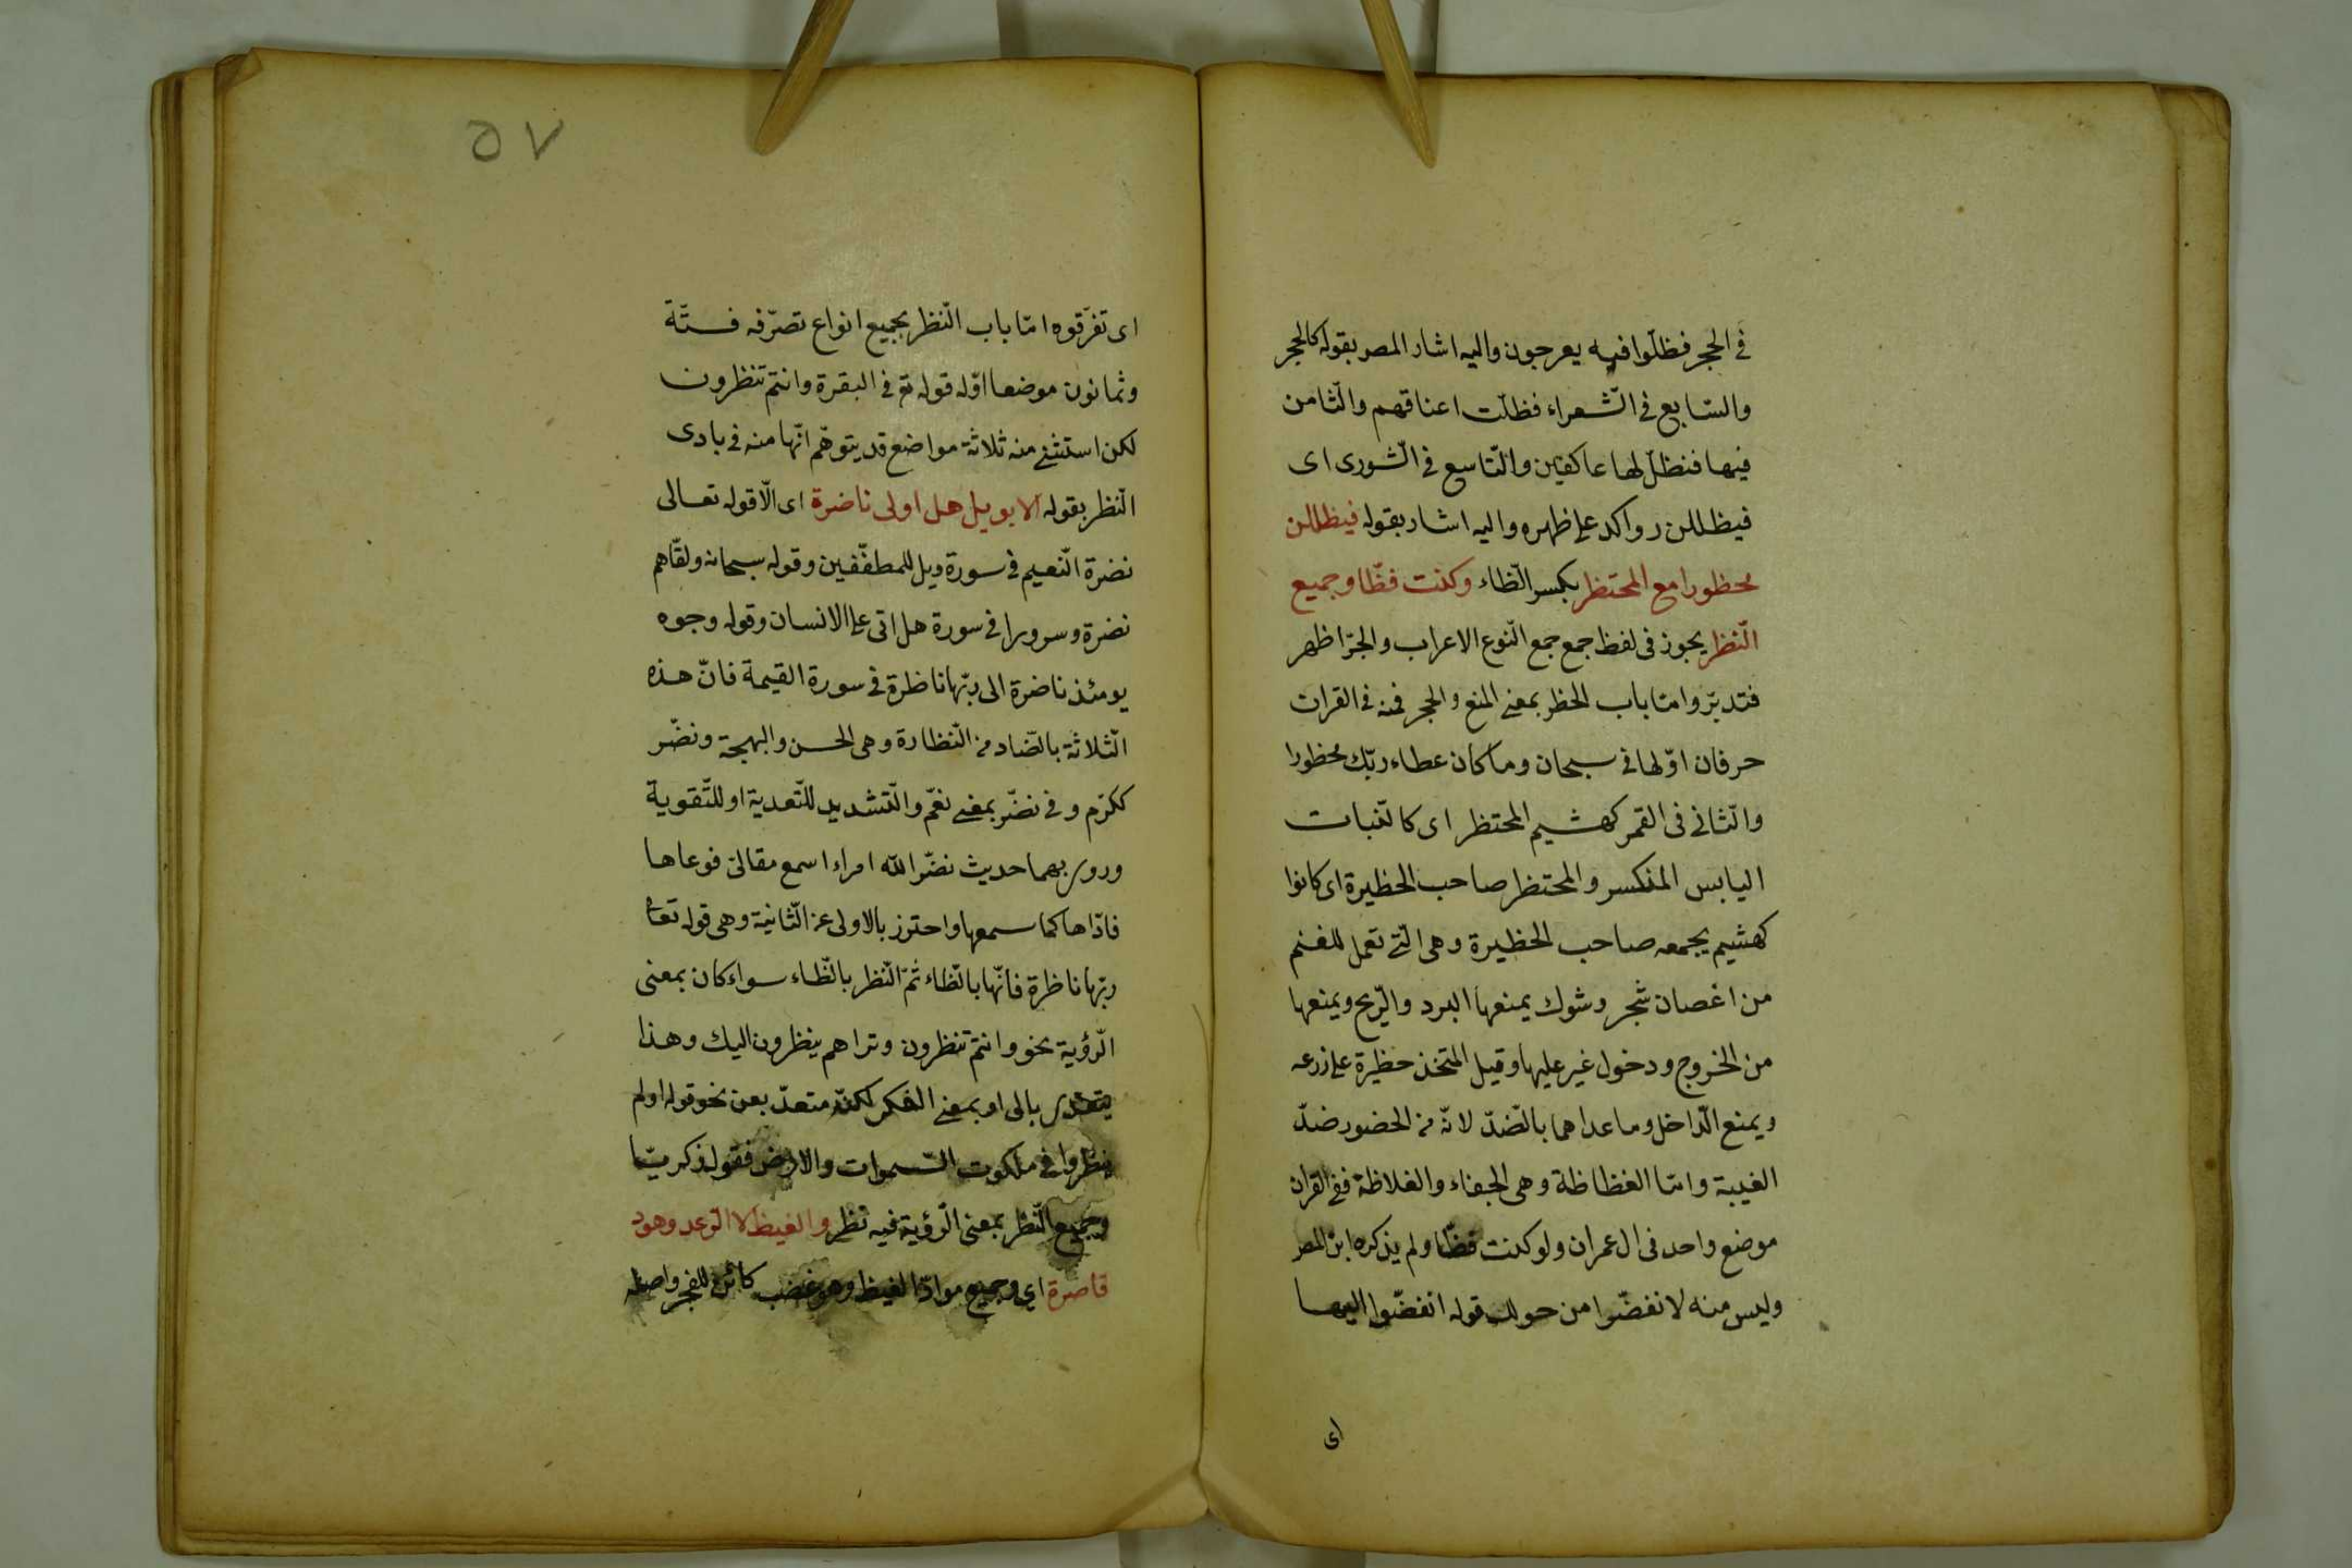 فى الحجر فظلّوا فيه يعرجون واليه اشار المصر بقوله كالحجر
والسّابع فى الشّعراء فظلّت اعناقهم والثّامن
فيها فنظلّ لها عاكفين والتّاسع فى الشّورى اى
فيظللن رواكد على ظهره واليه اشار بقوله فيظللن
محظورا مع المحتظر بكسر الظّاء وكنت فظّا وجميع
النّظر يجوز فى لفظ جمع جمع النّوع الاعراب والجرّ اظهر
فتدبّر وامّا باب الحظر بمعنى المنع والحجر فمنه فى القران
حرفان اوّلها فى سبحان وما كان عطاء ربّك محظورا
والثّانى فى القمر كهشيم المحتظر اى كالنّبات
اليابس المنكسر والمحتظر صاحب الحظيرة اى كانوا
كهشيم يجمعه صاحب الحظيرة وهى الّتى تعمل للغنم
من اغصان شجر وشوك يمنعها البرد والرّيح ويمنعها
من الخروج ودخول غير عليها وقيل المتخذ حظيرة على زرعه
ويمنع الدّاخل وما عداهما بالضّدّ لانّه من الحضور ضدّ
الغيبة وامّا الفظاظة وهى الجفاء والغلاظة ففى القران
موضع واحد فى ال عمران ولو كنت فظّا ولم يذكره ابن المصر
وليس منه لانفضّوا من حولك قوله انفضّوا اليها
اى
٥٧
اى تفرّقوه امّا باب النّظر بجميع انواع تصرّفه فستّة
وثمانون موضعا اوّله قوله تع فى البقرة وانتم تنظرون
لكن استثنى منه ثلاثة مواضع قد يتوهّم انّها منه فى بادى
النّظر بقوله الا بويل هل اولى ناضرة اى الّا قوله تعالى
نضرة النّعيم فى سورة ويل للمطفّفين وقوله سبحانه ولقّاهم
نضرة وسرورا فى سورة هل اتى على الانسان وقوله وجوه
يومئذ ناضرة الى ربّها ناظرة فى سورة القيمة فانّ هذه
الثّلاثة بالضّاد من النّظارة وهى الحسن والبهجة ونضّر
ككرّم وفى نضّر بمعنى نعّم والتّشديد للتّعدية او للتّقوية
وروى بهما حديث نضّر الله امراء اسمع مقالتى فوعاها
فادّاها كما سمعها واحترز بالاولى عن الثّانية وهى قوله تعا
ربّها ناظرة فانّها بالظّاء ثمّ النّظر بالظّاء سواء كان بمعنى
الرّؤية نحو وانتم تنظرون وتراهم ينظرون اليك وهذا
يتعدى بالى او بمعنى الفكر لكنّه متعدّ بعن نحو قوله اولم
ينظروا فى ملكوت السّموات والارض فقول زكريّا
وجميع النّظر بمعنى الرّؤية فيه نظر والغيظ لا الرّعد وهود
قاصرة اى وجميع موادّ الغيظ وهو غضب كائن للفجر واصله